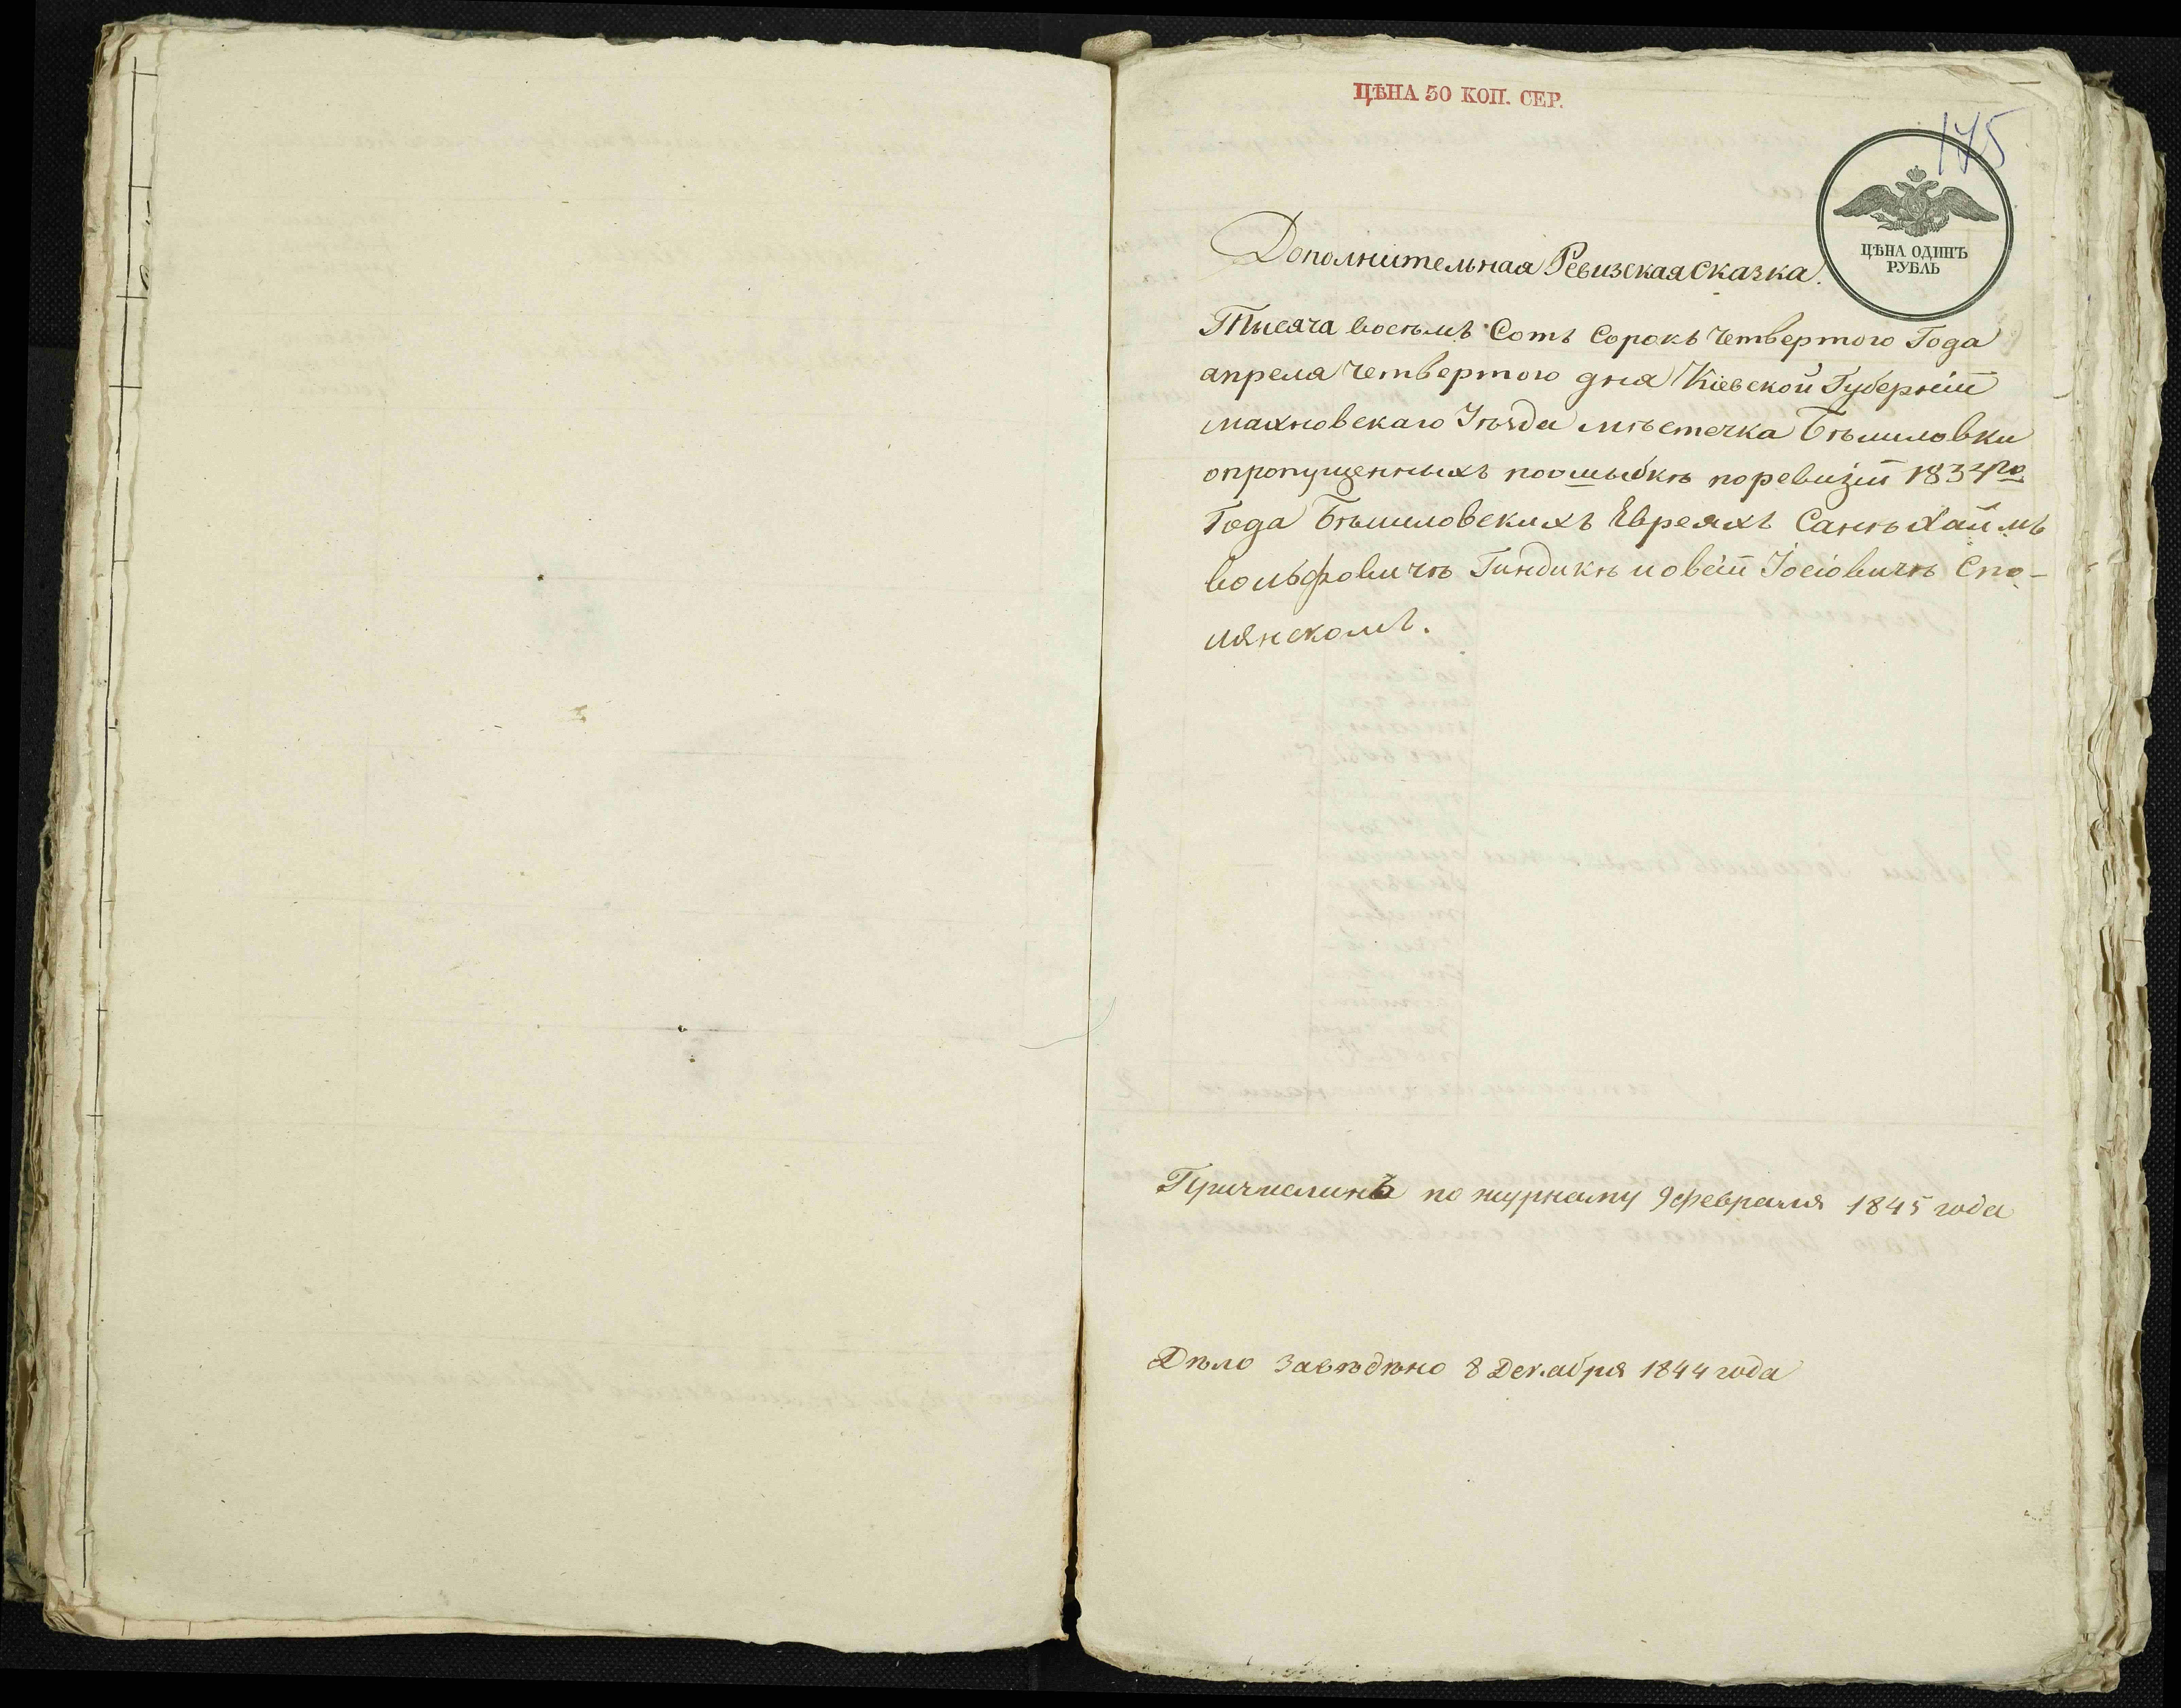 ЦѢНА 30 КОП. СЕР.
175
ЦѢНА ОДИНЪ
РУБЛЬ
Дополнительная Ревизская Сказка.
Тысяча восемъ Сотъ Сорокъ Четвертого Года
апреля Четвертого дня Кіевской Губерніи
махновскаго Уѣзда мѣстечка Бѣлиловки
опропущенныхъ поошыбкѣ поревизіи 1834го
Года Бѣлиловскихъ Евреяхъ Санѣхаймъ
вольфовичѣ Гиндикѣ иовсіи Іосіовичѣ Спо-
лянскомъ.
Причисленъ по журналу 9 февраля 1845 года
Дѣло Завѣдѣно 8 Декабря 1844 года